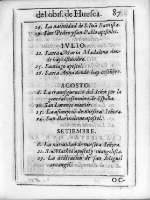 del obis. de Huesca. 87
24. La natiuidad de S. Iuā Bautista.
29. San Pedro y san Pablo apostoles.
IVLIO.
22. Santa Maria Madalena
25. Santiago apostol.
26. Santa Anna
AGOSTO.
6. La transfiguració del señor
10. San Lorenço martir.
15. La assumpció de nuestra señora.
24. San Bartolome apostol.
SETIEMBRE.
8. La natiuidad de nuestra señora.
21. San Matheo apostol y euangelista.
29. La dedicacion de san Miguel
arcangel.
OC-